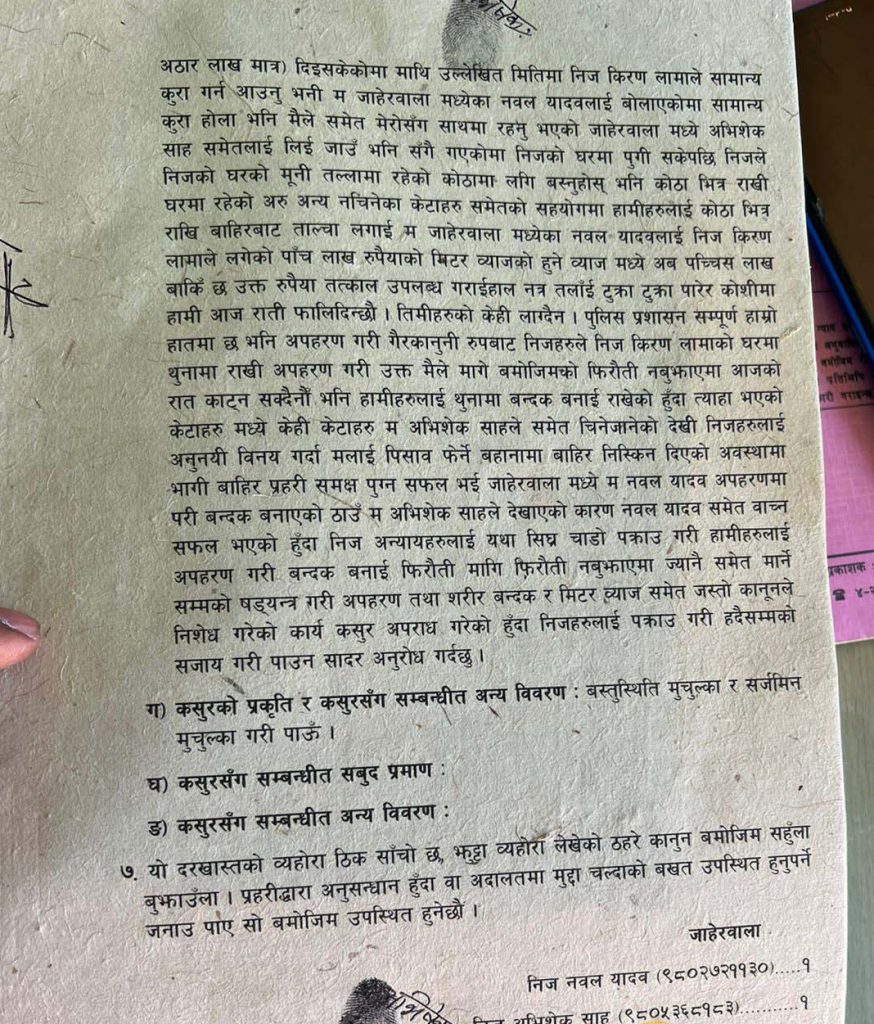 अठार लाख मात्र) दिइसकेकोमा माथि उल्लेखित मितिमा निज किरण लामाले सामान्य
कुरा गर्न आउनु भनी म जाहेरवाला मध्येका नवल यादवलाई बोलाएकोमा सामान्य
कुरा होला भनि मैले समेत मेरोसँग साथमा रहनु भएको जाहेरवाला मध्ये अभिशेक
साह समेतलाई लिई जाउँ भनि सँगै गएकोमा निजको घरमा पुगी सकेपछि निजले
निजको घरको मूनी तल्लामा रहेको कोठामा लगि बस्नुहोस् भनि कोठा भित्र राखी
घरमा रहेको अरु अन्य नचिनेका केटाहरु समेतको सहयोगमा हामीहरुलाई कोठा भित्र
राखि बाहिरबाट ताल्चा लगाई म जाहेरवाला मध्येका नवल यादवलाई निज किरण
लामाले लगेको पाँच लाख रुपैयाको मिटर व्याजको हुने व्याज मध्ये अब पच्चिस लाख
बाकिँ छ उक्त रुपैया तत्काल उपलब्ध गराईहाल नत्र तलाँई टुक्रा टुक्रा पारेर कोशीमा
हामी आज राती फालिदिन्छौ । तिमीहरुको केही लाग्दैन । पुलिस प्रशासन सम्पूर्ण हाम्रो
हातमा छ भनि अपहरण गरी गैरकानुनी रुपबाट निजहरुले निज किरण लामाको घरमा
थुनामा राखी अपहरण गरी उक्त मैले मागे बमोजिमको फिरौती नबुझाएमा आजको
रात काट्न सक्दैनौं भनि हामीहरुलाई थुनामा बन्दक बनाई राखेको हुँदा त्याहा भएको
केटाहरु मध्ये केही केटाहरु म अभिशेक साहले समेत चिनेजानेको देखी निजहरुलाई
अनुनयी विनय गर्दा मलाई पिसाव फेर्ने बहानामा बाहिर निस्किन दिएको अवस्थामा
भागी बाहिर प्रहरी समक्ष पुग्न सफल भई जाहेरवाला मध्ये म नवल यादव अपहरणमा
परी बन्दक बनाएको ठाउँ म अभिशेक साहले देखाएको कारण नवल यादव समेत वाच्न
सफल भएको हुँदा निज अन्यायहरुलाई यथा सिघ्र चाडो पक्राउ गरी हामीहरुलाई
अपहरण गरी बन्दक बनाई फिरौती मागि फिरौती नबुझाएमा ज्यानै समेत मार्ने
सम्मको षड्यन्त्र गरी अपहरण तथा शरीर बन्दक र मिटर व्याज समेत जस्तो कानूनले
निशेध गरेको कार्य कसुर अपराध गरेको हुँदा निजहरुलाई पक्राउ गरी हदैसम्मको
सजाय गरी पाउन सादर अनुरोध गर्दछु ।
ग) कसुरको प्रकृति र कसुरसँग सम्बन्धीत अन्य विवरण : बस्तुस्थिति मुचुल्का र सर्जमिन
मुचुल्का गरी पाऊँ ।
घ) कसुरसँग सम्बन्धीत सबुद प्रमाण :
ङ) कसुरसँग सम्बन्धीत अन्य विवरण :
७. यो दरखास्तको व्यहोरा ठिक साँचो छ, झुट्ठा व्यहोरा लेखेको ठहरे कानुन बमोजिम सहुँला
बुझाउँला । प्रहरीद्वारा अनुसन्धान हुँदा वा अदालतमा मुद्दा चल्दाको बखत उपस्थित हुनुपर्ने
जनाउ पाए सो बमोजिम उपस्थित हुनेछौ ।
जाहेरवाला
निज नवल यादव (९८०२७२११३०).....१
निज अभिशेक साह (९८०५३६८१८३)...........१
प्रकाशक :
☎ ४-२